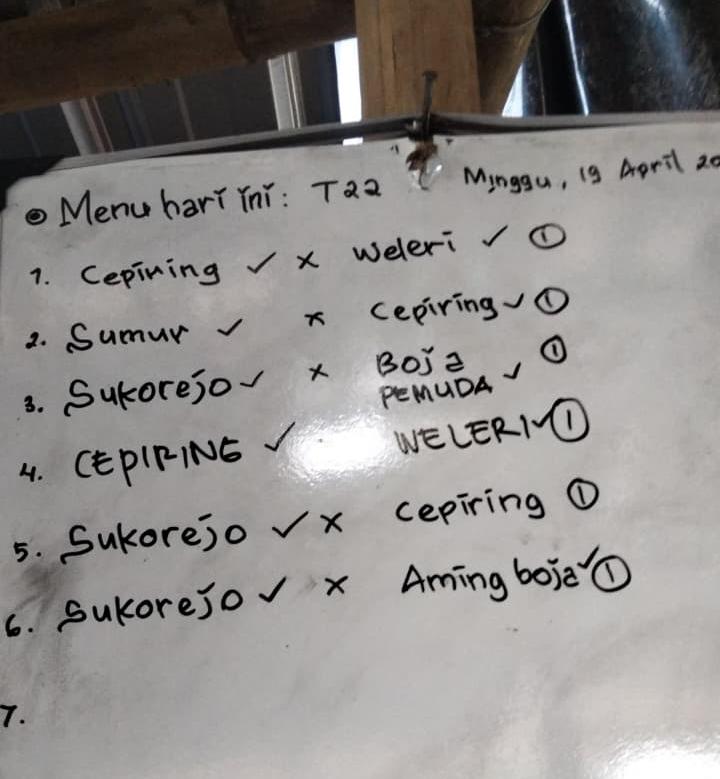 • Menu hari ini: T22 Minggu, 19 April 20
1. Cepiring ✓ x Weleri ✓ ①
2. Sumur ✓ x Cepiring ✓ ①
3. Sukorejo ✓ x Boja ①
PEMUDA ✓
4. CEPIRING ✓ WELERI ✓ ①
5. Sukorejo ✓ x Cepiring ①
6. Sukorejo ✓ x Aming boja ✓ ①
7.